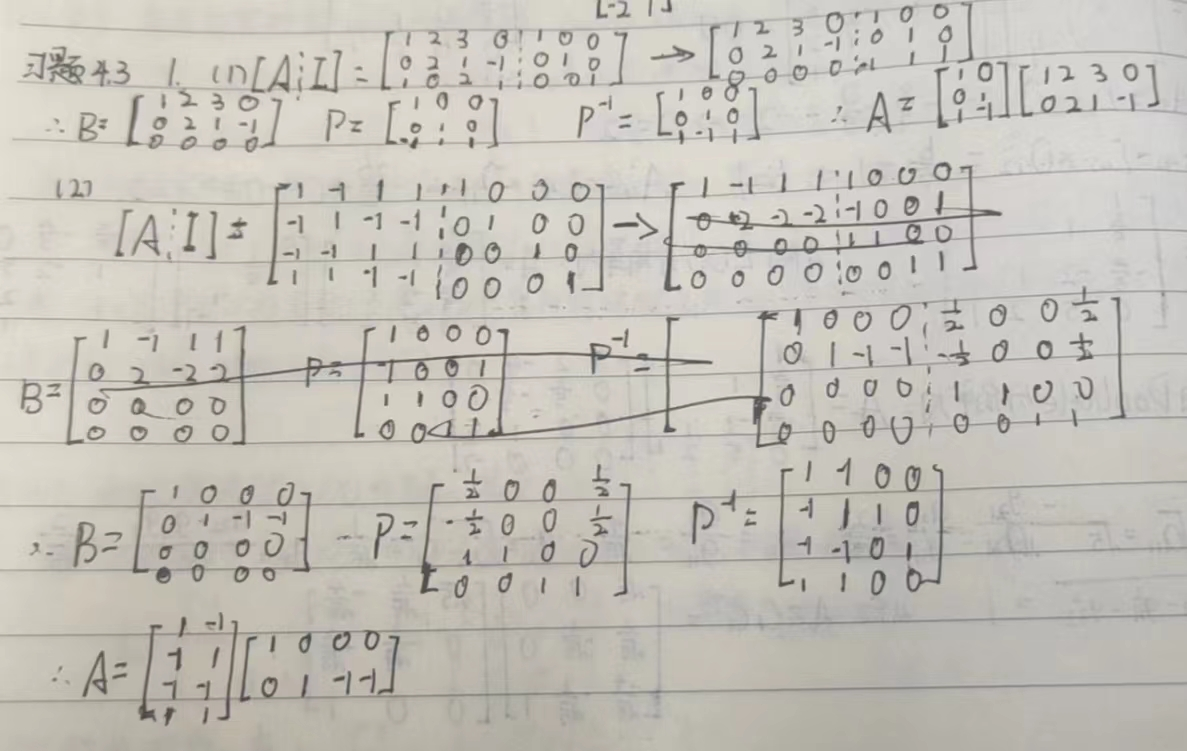 [-2 1]
习题 4.3 1. (1) [A⋮I] = [1 2 3 0 ⋮ 1 0 0; 0 2 1 -1 ⋮ 0 1 0; 1 0 2 1 ⋮ 0 0 1] → [1 2 3 0 ⋮ 1 0 0; 0 2 1 -1 ⋮ 0 1 0; 0 0 0 0 ⋮ -1 1 1]
∴ B = [1 2 3 0; 0 2 1 -1; 0 0 0 0] P = [1 0 0; 0 1 0; -1 1 1] P⁻¹ = [1 0 0; 0 1 0; 1 -1 1] ∴ A = [1 0; 0 1; 1 -1] [1 2 3 0; 0 2 1 -1]
(2)
[A⋮I] = [1 -1 1 1 ⋮ 1 0 0 0; -1 1 -1 -1 ⋮ 0 1 0 0; -1 -1 1 1 ⋮ 0 0 1 0; 1 1 -1 -1 ⋮ 0 0 0 1] → [1 -1 1 1 ⋮ 1 0 0 0; 0 2 -2 -2 ⋮ -1 0 0 1; 0 0 0 0 ⋮ 1 1 0 0; 0 0 0 0 ⋮ 0 0 1 1]
B = [1 -1 1 1; 0 2 -2 2; 0 0 0 0; 0 0 0 0] P = [1 0 0 0; -1 0 0 1; 1 1 0 0; 0 0 1 1] P⁻¹ = [ [1 0 0 0 ⋮ 1/2 0 0 1/2; 0 1 -1 -1 ⋮ -1/2 0 0 1/2; 0 0 0 0 ⋮ 1 1 0 0; 0 0 0 0 ⋮ 0 0 1 1]
∴ B = [1 0 0 0; 0 1 -1 -1; 0 0 0 0; 0 0 0 0] P = [1/2 0 0 1/2; -1/2 0 0 1/2; 1 1 0 0; 0 0 1 1] P⁻¹ = [1 -1 0 0; -1 1 1 0; -1 -1 0 1; 1 1 0 0]
∴ A = [1 -1; -1 1; -1 -1; 1 1] [1 0 0 0; 0 1 -1 -1]